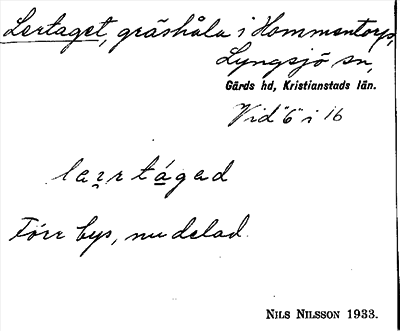 Lertaget, gräshåla i Hommentorp,
Lyngsjö sn,
Gärds hd, Kristianstads län.
Vid "6" i 16
laʒrtágad
Förr bys, nu delad.
NILS NILSSON 1933.